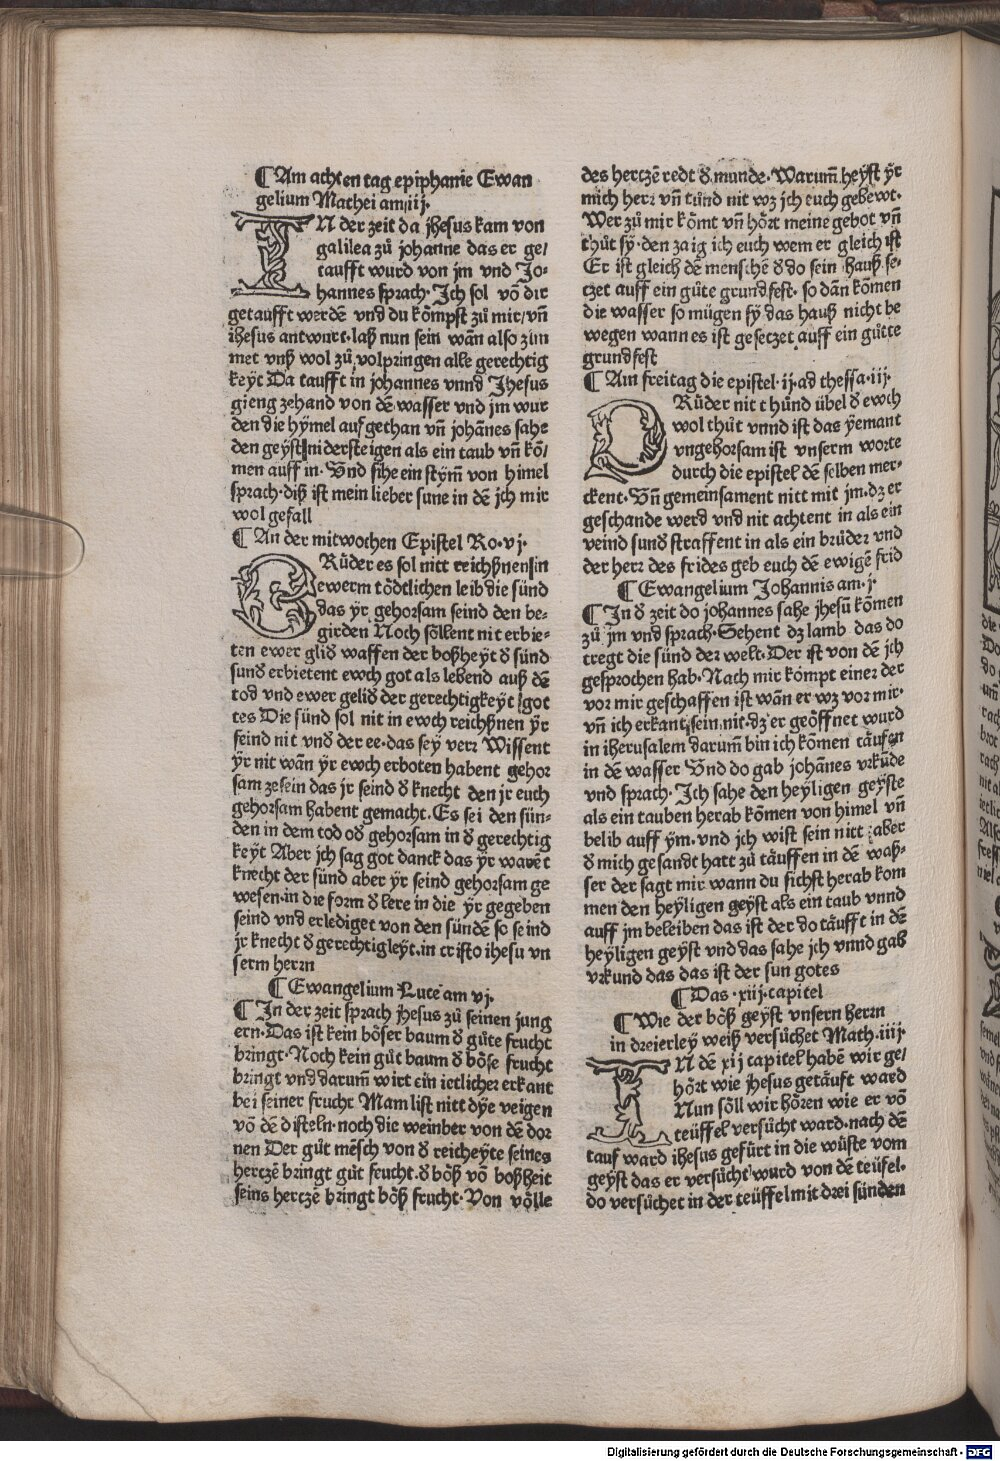 ¶ Am achten tag epiphanie Ewan
gelium Mathei am iij.
IN der zeit da jhesus kam von
galilea zů johanne das er ge/
taufft wurd von jm vnd Jo-
hannes sprach. Ich sol võ dir
getaufft werdẽ vnd du kõmpst zů mir/vñ
ihesus antwurt. laß nun sein wãn also zim
met vnß wol zů volpringen alle gerechtig
keyt Da taufft in johannes vnnd Jhesus
gieng zehand von dẽ wasser vnd jm wur
den die hymel aufgethan vñ johãnes sahe
den geyst nidersteigen als ein taub vñ kõ/
men auff in. Vnd sihe ein stym̃ von himel
sprach. diß ist mein lieber sune in dẽ jch mir
wol gefall
¶ An der mitwochen Epistel Ro. vj.
BRüder es sol nitt reichßnen in
ewerm tödtlichen leib die sünd
das ÿr gehorsam seind den be-
girden Noch söllent nit erbie-
ten ewer glid waffen der boßheyt d̕ sünd
sund erbietent ewch got als lebend auß dẽ
tod vnd ewer gelid der gerechtigkeyt got
tes Die sünd sol nit in ewch reichßnen ÿr
seind nit vnd der ee. das sey verr Wissent
ÿr nit wãn ÿr ewch erboten habent gehor
sam ze sein das jr seind d̕ knecht den jr euch
gehorsam habent gemacht. Es sei den sün-
den in dem tod od̕ gehorsam in d̕ gerechtig
keyt Aber jch sag got danck das ÿr warẽt
knecht der sünd aber ÿr seind gehorsam ge
wesen. in die form d̕ lere in die ÿr gegeben
seind vnd erlediget von den sündẽ so seind
jr knecht d̕ gerechtigkeyt. in cristo ihesu vn
serm herrn
¶ Ewangelium Luce am vj.
¶ In der zeit sprach jhesus zů seinen jung
ern. Das ist kein böser baum d̕ gůte frucht
bringt. Noch kein gůt baum d̕ böse frucht
bringt vnd darum̃ wirt ein ietlicher erkant
bei seiner frucht Mam list nitt dye veigen
võ dẽ disteln. noch die weinber von dẽ dor
nen Der gůt mẽsch von d̕ reicheyte seines
hertzẽ bringt gůt frucht. d̕ böß võ boßheit
seins hertzẽ bringt böß frucht. Von völle
des hertzẽ redt d̕ munde. Warum̃ heyst ÿr
mich herr vñ tůnd nit wz jch euch gebewt.
Wer zů mir kõmt vñ hört meine gebot vñ
thůt sy. den zaig ich euch wem er gleich ist
Er ist gleich dẽ menschẽ d̕ do sein hauß se-
tzet auff ein gůte grundfest. so dãn kõmen
die wasser so mügen sy das hauß nicht be
wegen wann es ist gesetzet auff ein gůtte
grundfest
¶ Am freitag die epistel. ij. ad thessa. iij.
BRüder nit thůnd übel d̕ ewch
wol thůt vnnd ist das ÿemant
vngehorsam ist vnserm worte
durch die epistel dẽ selben mer-
ckent. Vñ gemeinsament nitt mit jm. dz er
geschande werd vnd nit achtent in als ein
veind sund straffent in als ein brůder vnd
der herr des frides geb euch dẽ ewigẽ frid
¶ Ewangelium Johannis am. j.
¶ In d̕ zeit do johannes sahe jhesũ kõmen
zů jm vnd sprach. Sehent dz lamb das do
tregt die sünd der welt. Der ist von dẽ jch
gesprochen hab. Nach mir kõmpt einer der
vor mir geschaffen ist wãn er wz vor mir.
vñ ich erkant sein nit. dz er geöffnet wurd
in iherusalem darum̃ bin ich kõmen täufen
in dẽ wasser Vnd do gab johãnes vrkũde
vnd sprach. Ich sahe den heyligen geyste
als ein tauben herab kõmen von himel vñ
belib auff ÿm. vnd jch wist sein nitt aber
d̕ mich gesandt hatt zů täuffen in dẽ waß-
ser der sagt mir wann du sichst herab kom
men den heyligen geyst als ein taub vnnd
auff jm beleiben das ist der do täufft in dẽ
heyligen geyst vnd das sahe jch vnnd gab
vrkund das das ist der sun gotes
¶ Das. xiij. capitel
¶ Wie der böß geyst vnsern herrn
in dreierley weiß versůchet Math. iiij.
IN dẽ xij capitel habẽ wir ge/
hört wie jhesus getäuft ward
Nun söll wir hören wie er võ
teüffel versůcht ward. nach dẽ
tauf ward ihesus gefürt in die wůste vom
geyst das er versůcht wurd von dẽ teüfel.
do versůchet in der teüffel mit drei sünden
Digitalisierung gefördert durch die Deutsche Forschungsgemeinschaft - DFG